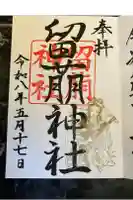 奉拝
留萠神社
留萠
神社
令和八年五月十七日